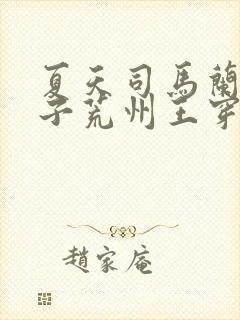 夏天司馬蘭
子荒州王穿
趙家庵